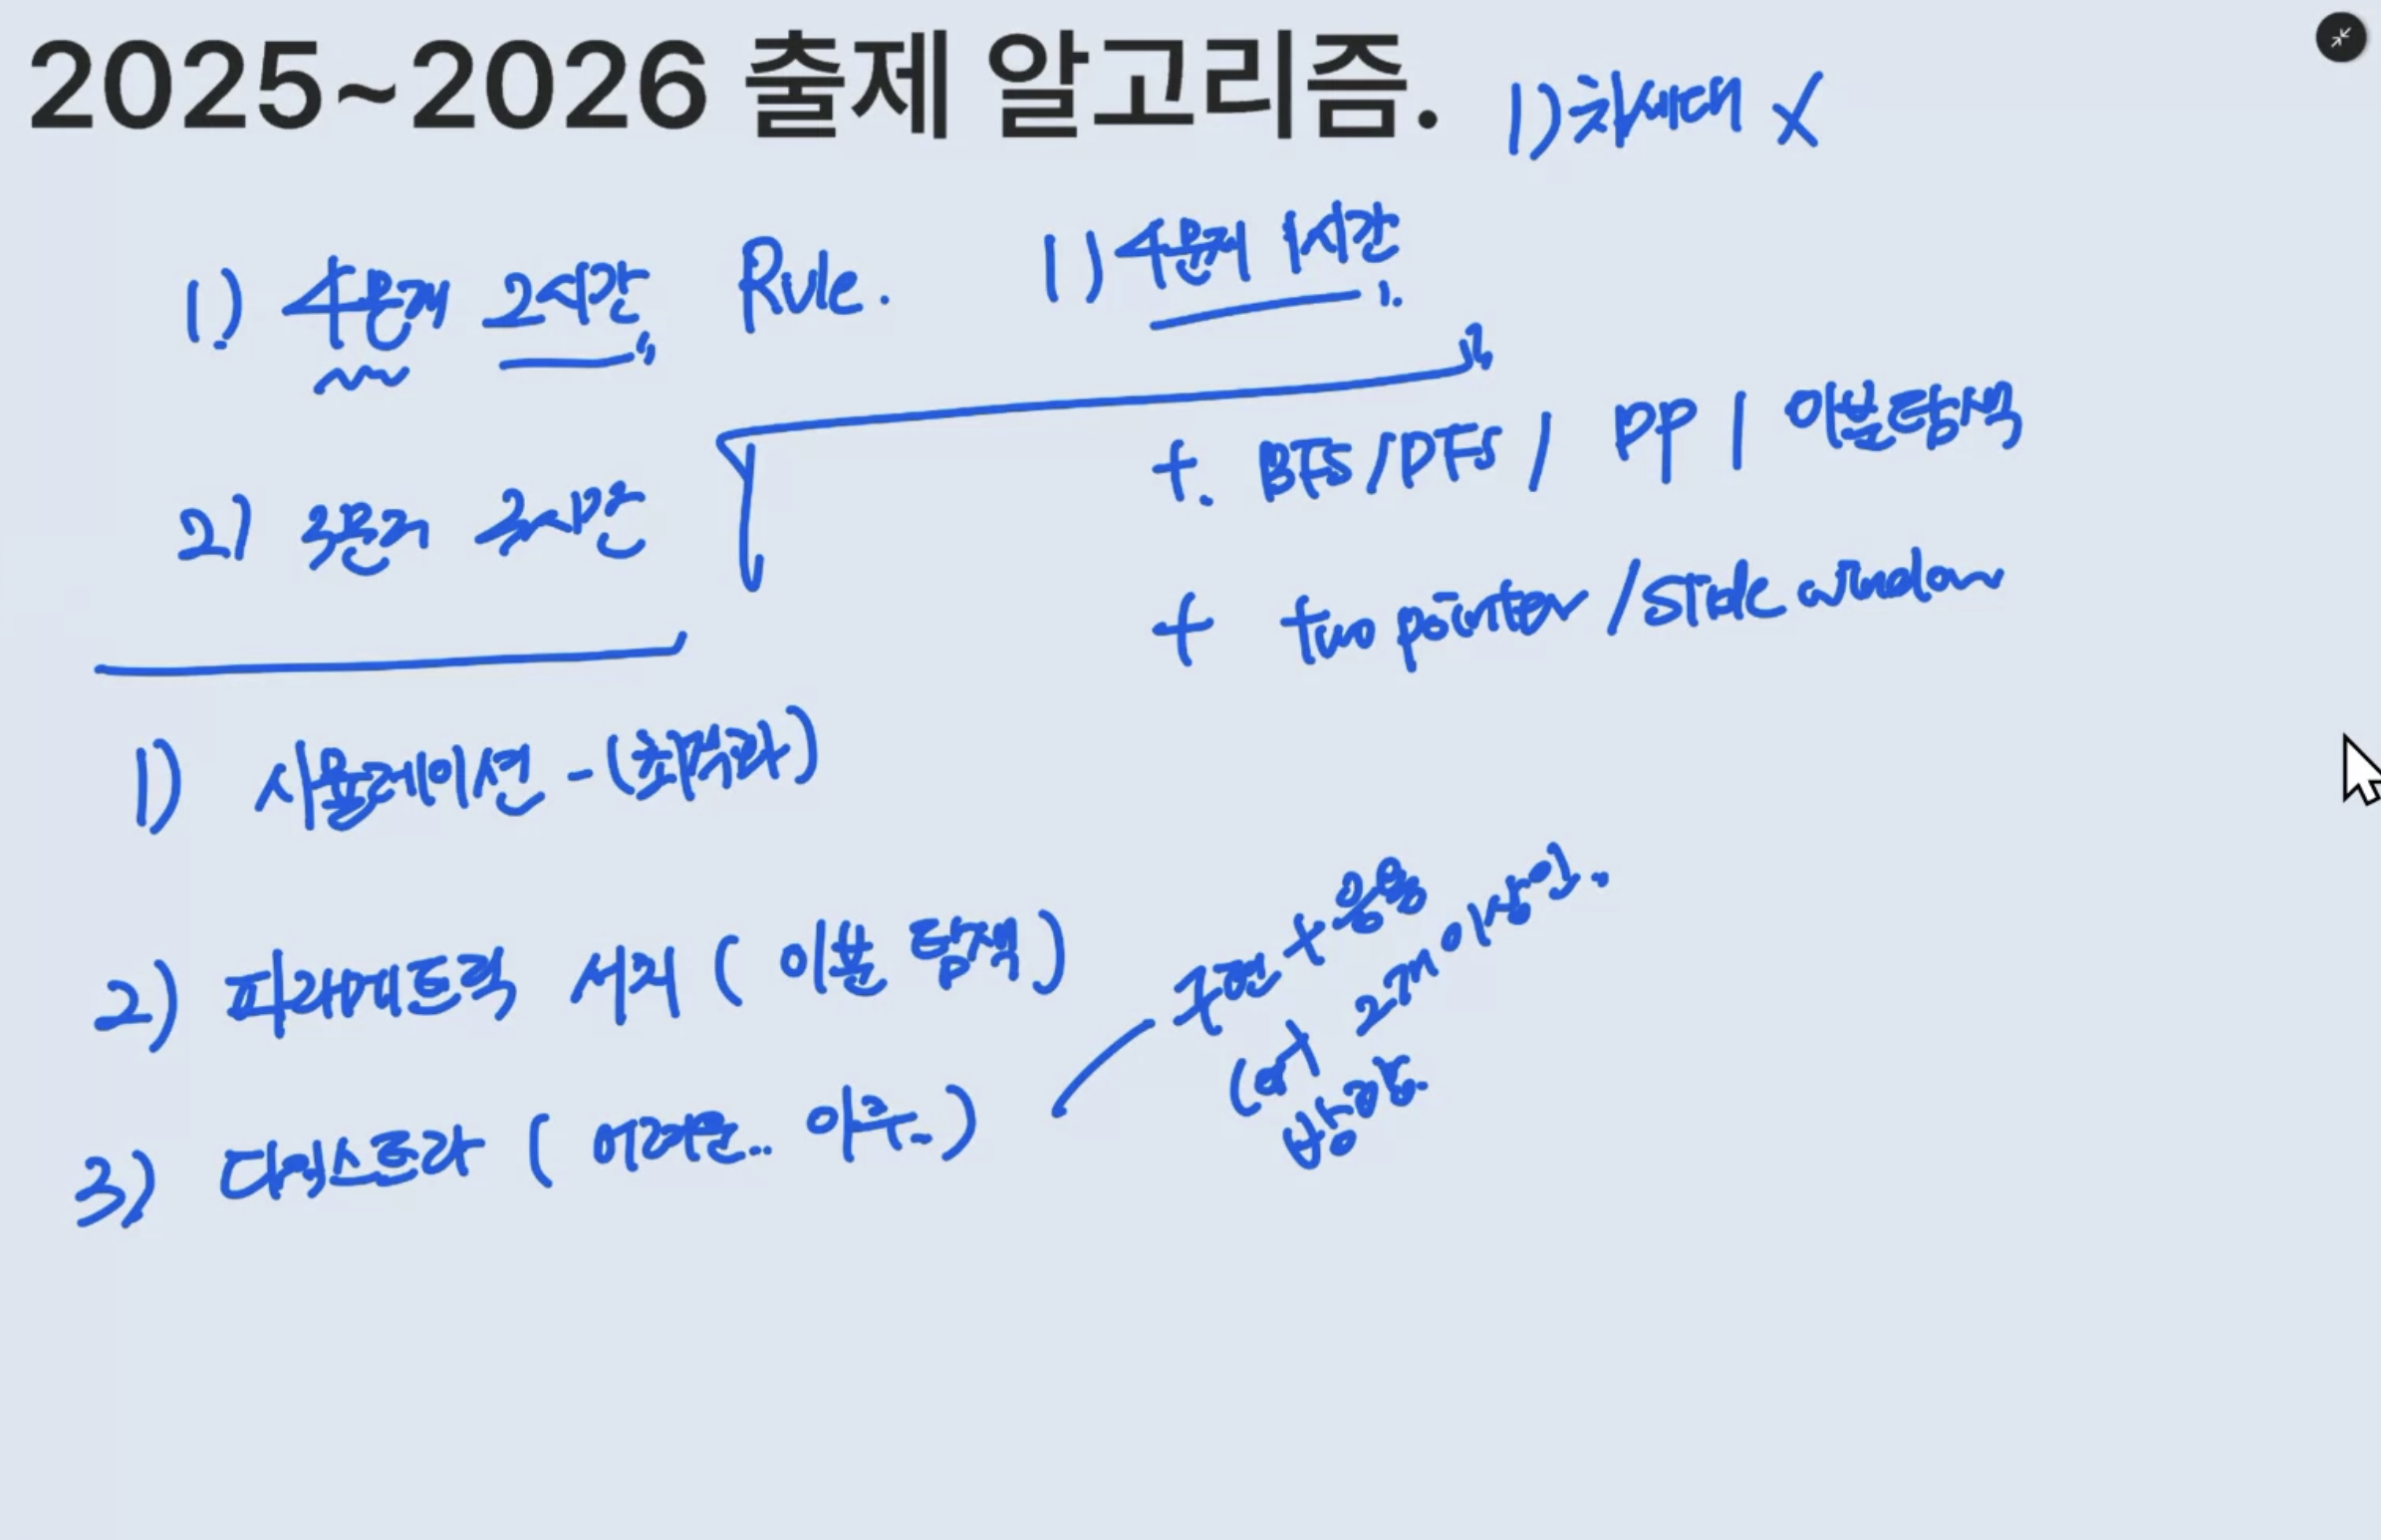 2025~2026 출제 알고리즘.
1) 차세대 X
1) 4문제 2시간
Rule.
1) 4문제 1시간
2) 3문제
+. BFS/DFS / DP | 이분탐색
+ two pointer / slide window
1) 시뮬레이션 - (최적화)
2) 파라메트릭 서치 ( 이분 탐색 )
3) 다익스트라 ( 어려운.. 아주.. )
구현 + 응용
2개 이상인..